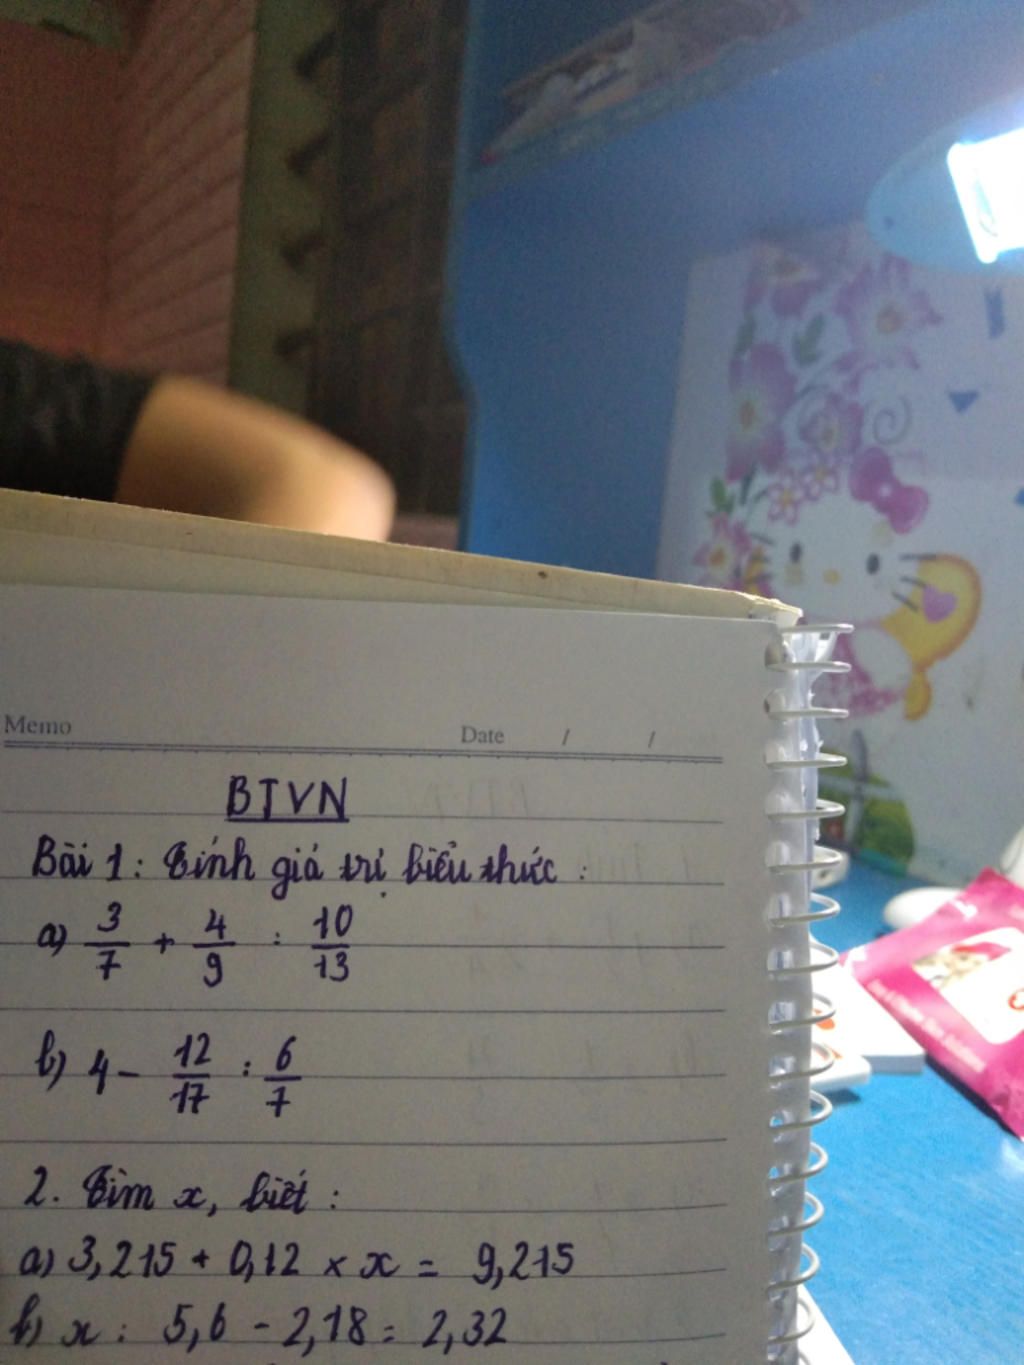 Memo Date / /
BTVN
Bài 1: Tính giá trị biểu thức:
a) 3/7 + 4/9 : 10/13
b) 4 - 12/17 : 6/7
2. Tìm x, biết:
a) 3,215 + 0,12 × x = 9,215
b) x : 5,6 - 2,18 = 2,32